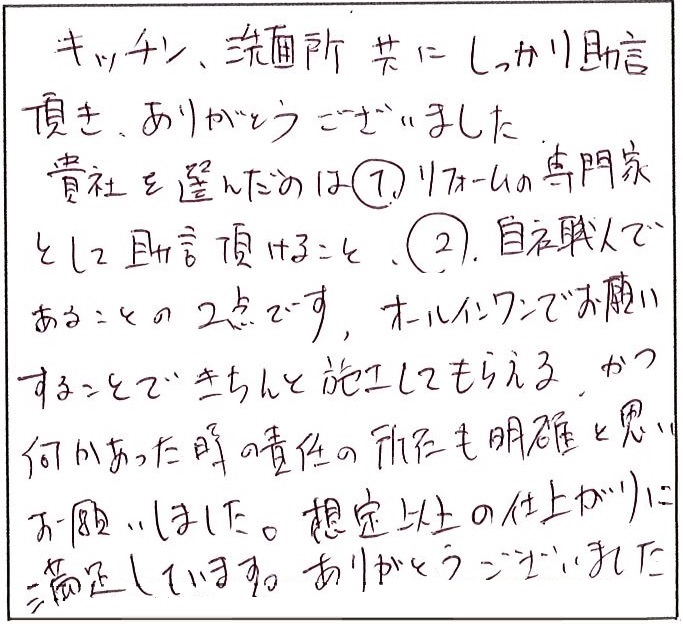 キッチン、洗面所 共に しっかり助言
頂き、ありがとうございました
貴社を選んだのは①リフォームの専門家
として助言頂けること、②.自社職人で
あることの2点です, オールインワンでお願い
することできちんと施工してもらえる、かつ
何かあった時の責任の所在も明確と思い
お願いしました。想定以上の仕上がりに
満足しています。ありがとうございました